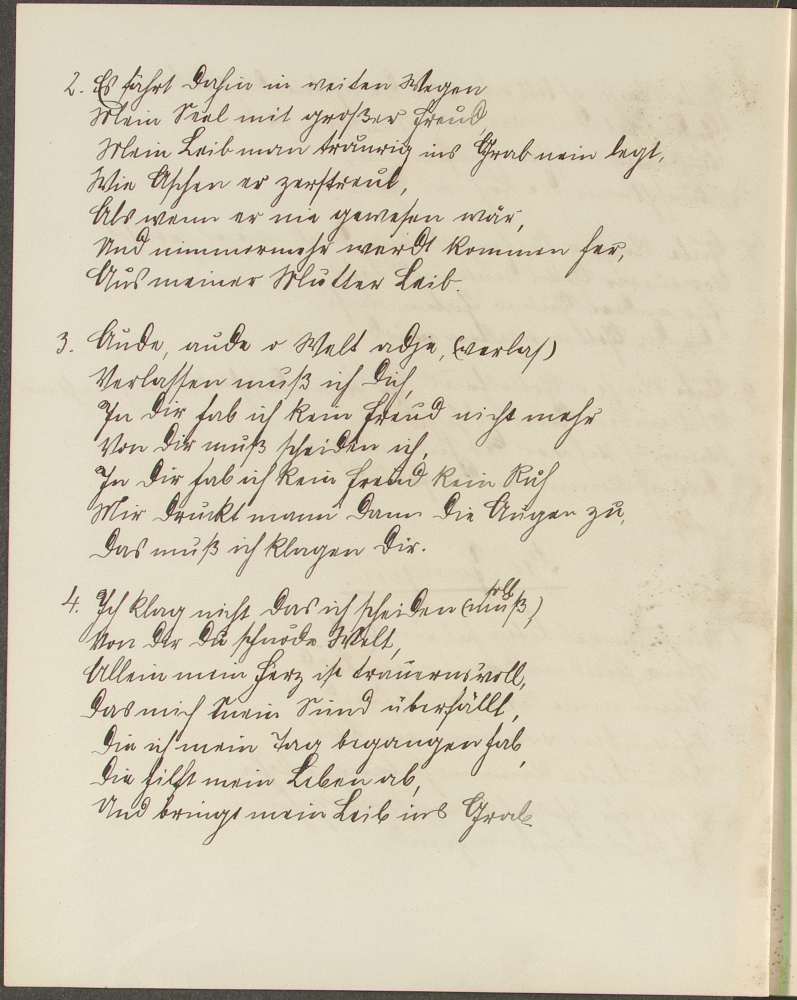 2. Es fährt dahin in weiten Wegen
Mein Seel mit großer Freud,
Mein Leib man traurig ins Grab nein legt,
Wie Aschen er zerstreut,
Als wenn er nie gewesen wär,
Und nimmermehr werdt kommen her,
Aus meiner Mutter Leib.
3. Aude, aude o Welt adje, (verlas)
Verlassen muß ich dich,
In dir hab ich kein Freud nicht mehr
Von dir muß scheiden ich,
In dir hab ich kein Freud kein Ruh
Mir druckt mann dann die Augen zu,
Das muß ich klagen dir.
4. Ich klag nicht das ich scheiden (muß) soll
Von dir du schnöde Welt,
Allein mein Herz ist trauernsvoll,
Das mich mein Sünd überfällt,
Die ich mein Tag begangen hab,
Die hilft mein Leben ab,
Und bringt mein Leib ins Grab